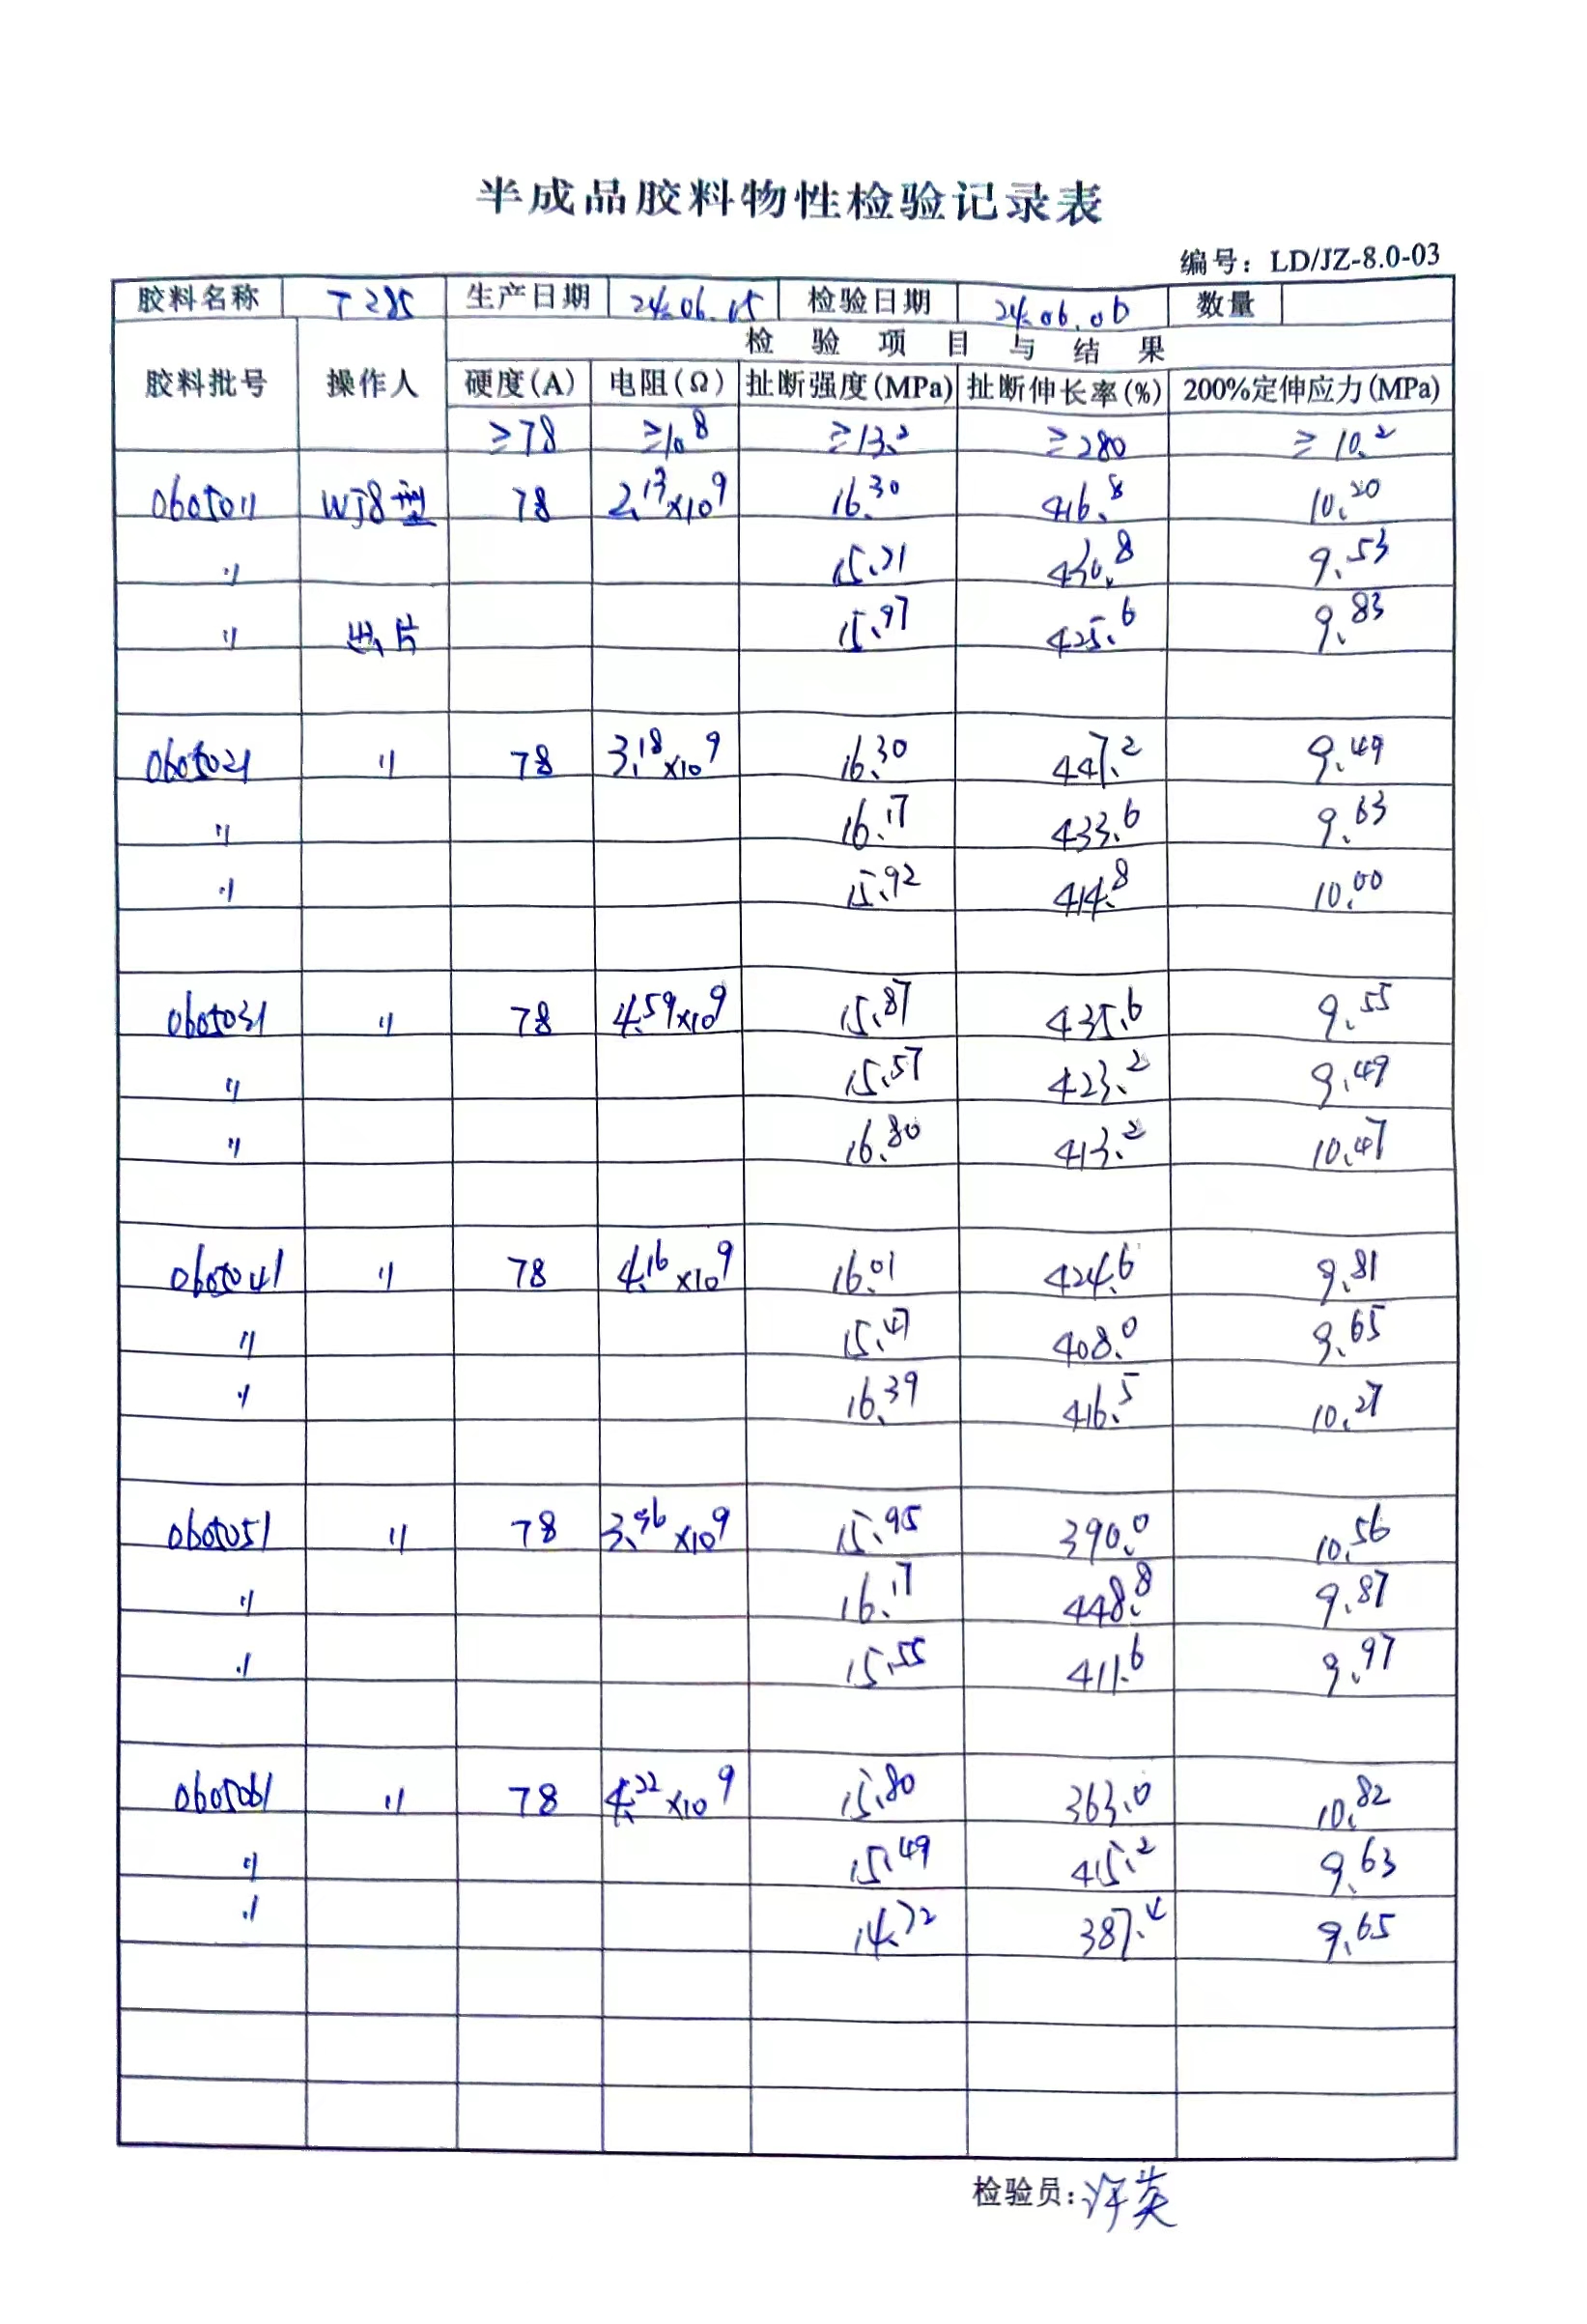 半成品胶料物性检验记录表
编号：LD/JZ-8.0-03
胶料名称 T285 生产日期 24.06.05 检验日期 24.06.06 数量
检验项目与结果
胶料批号 操作人 硬度(A) 电阻(Ω) 扯断强度(MPa) 扯断伸长率(%) 200%定伸应力(MPa)
≥78 ≥10⁸ ≥13.2 ≥280 ≥10.2
0605011 WJ8型 78 2.13×10⁹ 16.30 416.8 10.20
〃 15.21 430.8 9.53
〃 出片 15.97 425.6 9.83
0605021 〃 78 3.18×10⁹ 16.30 447.2 9.49
〃 16.17 433.6 9.63
〃 15.92 414.8 10.00
0605031 〃 78 4.59×10⁹ 15.87 435.6 9.55
〃 15.57 423.2 9.49
〃 16.80 413.2 10.47
0605041 〃 78 4.16×10⁹ 16.01 424.6 9.81
〃 15.47 408.0 9.65
〃 16.39 416.5 10.27
0605051 〃 78 15.95 390.0 10.56
〃 16.17 448.8 9.87
〃 15.55 411.6 9.97
0605061 〃 78 4.22×10⁹ 15.80 363.0 10.82
〃 15.49 415.2 9.63
〃 14.72 387.4 9.65
检验员：许英